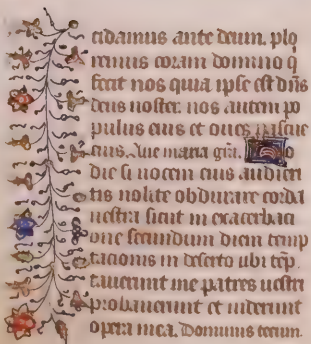 cidamus ante deum. plo
remus coram domino q
fecit nos quia ipse est dns
deus noster. nos autem po
pulus eius et oues pascue
eius. Aue maria gra. Ho
die si uocem eius audieri
tis nolite obdurare corda
uestra sicut in exacerbaci
one secundum diem temp
tacionis in deserto ubi tep
tauerunt me patres uestri
probauerunt et uiderunt
opera mea. Dominus tecum.